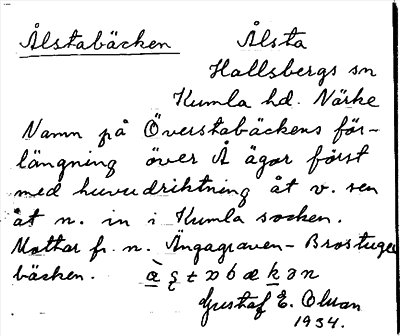 Ålstabäcken Ålsta
Hallsbergs sn
Kumla hd. Närke
Namn på Överstabäckens för-
längning över Å ägor först
med huvudriktning åt v. sen
åt n. in i Kumla socken.
Mottar fr. n. Ängagraven - Brostuge
bäcken.
Gustaf E. Olsson
1934.